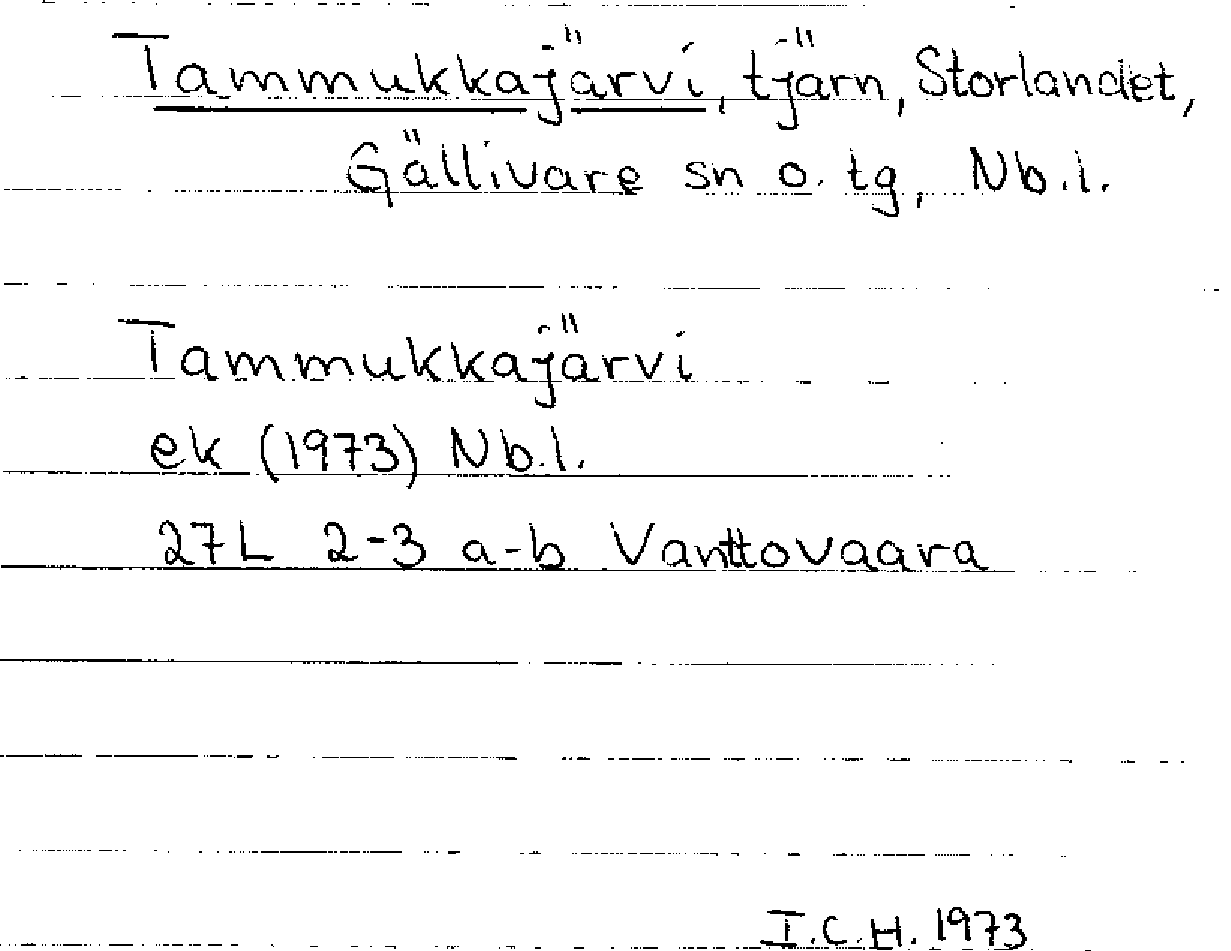 Tammukkajärvi, tjärn, Storlandet,
Gällivare sn o. tg, Nb.l.
Tammukkajärvi
ek (1973) Nb.l.
27L 2-3 a-b Vanttovaara
I.C.H. 1973